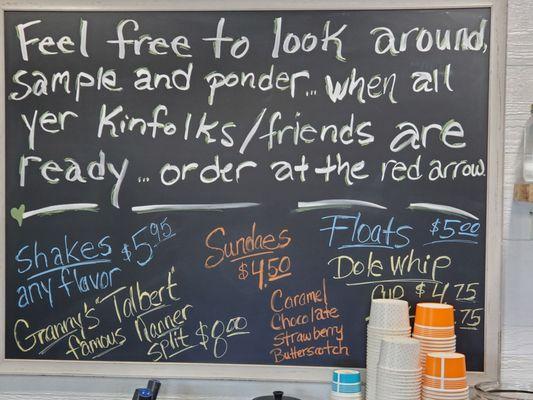 Feel free to look around,
sample and ponder... when all
yer Kinfolks/friends are
ready... order at the red arrow.
Shakes $5.95
any flavor
Granny's "Talbert"
famous Nanner
split $8.00
Sundaes
$4.50
Caramel
Chocolate
strawberry
Butterscotch
Floats $5.00
Dole Whip
$4.75
.75